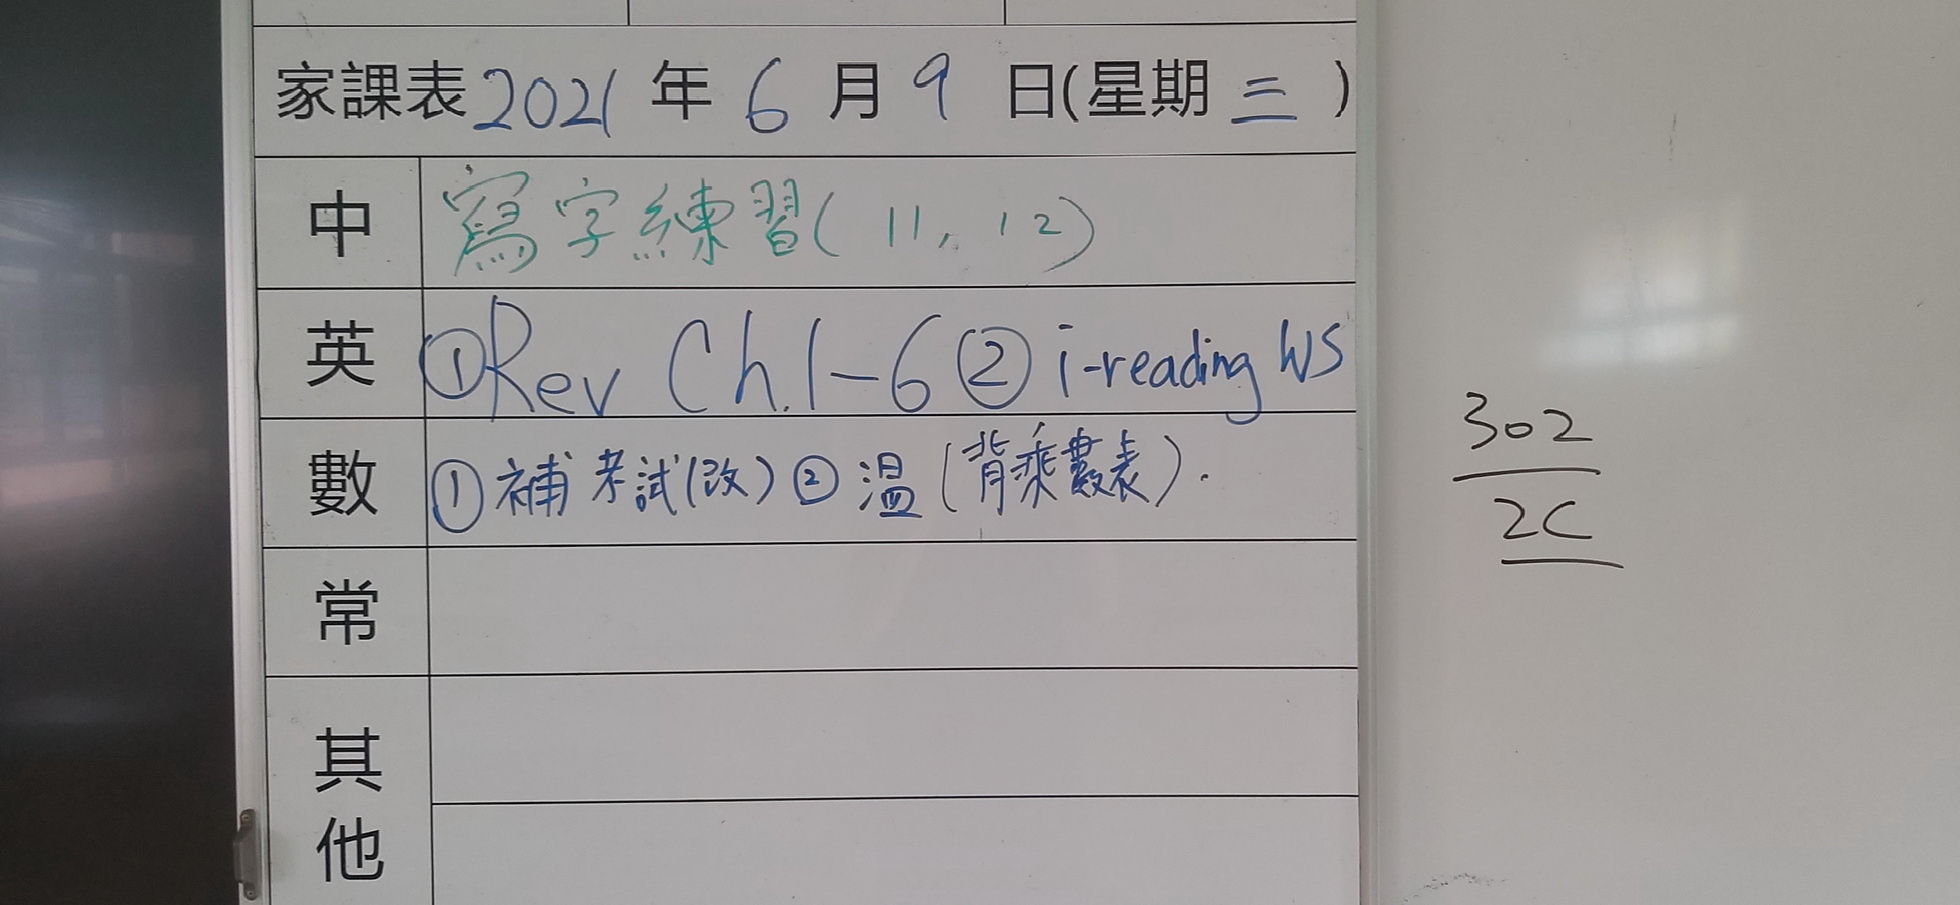 家課表 2021 年 6 月 9 日(星期 三 )
中 寫字練習(11, 12)
英 ①Rev Ch.1-6 ② i-reading WS
數 ①補考試(改) ②溫(背乘數表).
常
其他
302
2C